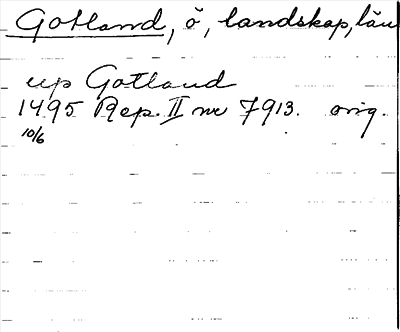 Gotland, ö, landskap, län
up Gotland
1495 Rep. II nr 7913. orig.
10/6